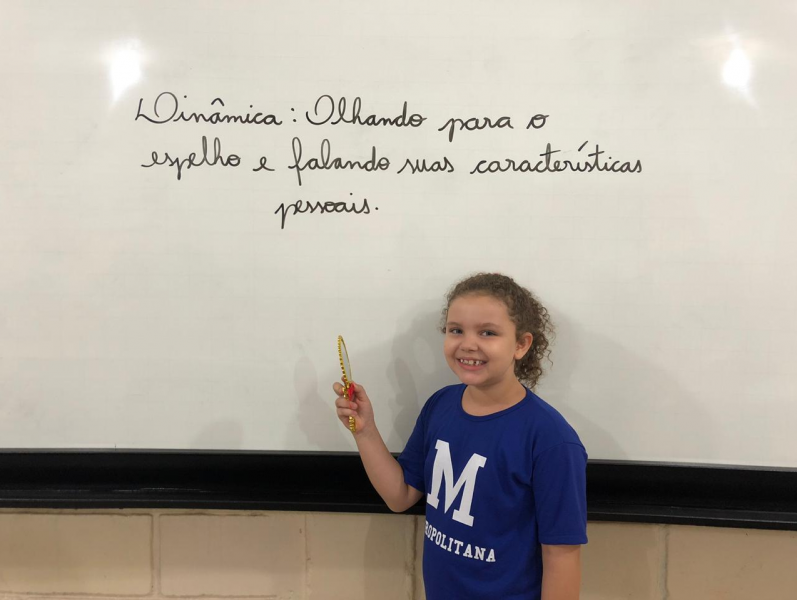 Dinâmica: Olhando para o
espelho e falando suas características
pessoais.
M
ROPOLITANA